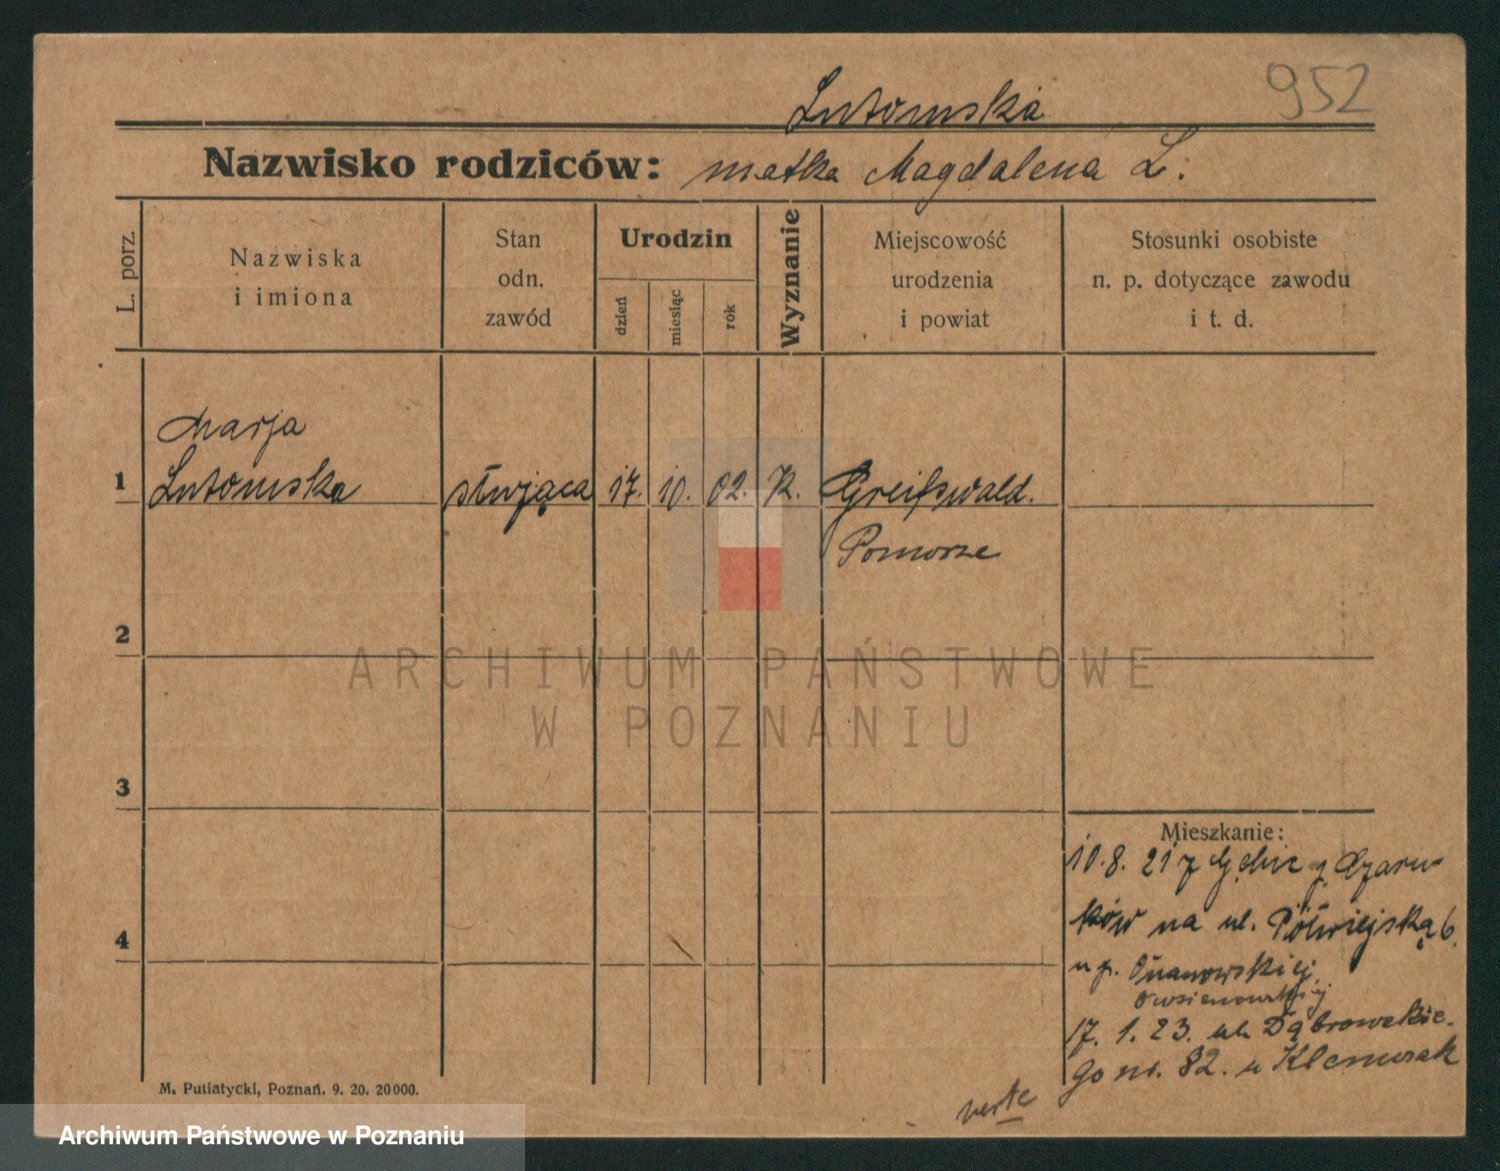 952
Lutomska
Nazwisko rodziców: matka Magdalena L.
L. porz.
Nazwiska
i imiona
Stan
odn.
zawód
Urodzin
dzień
miesiąc
rok
Wyznanie
Miejscowość
urodzenia
i powiat
Stosunki osobiste
n. p. dotyczące zawodu
i t. d.
Marja
1 Lutomska służąca 17. 10. 02. K. Greifswald.
Pomorze
2
ARCHIWUM PAŃSTWOWE
W POZNANIU
3
Mieszkanie:
10.8.21 z Gębic p. Czarn
ków na ul. Półwiejską 6.
u p.
4
17. 1. 23. ul. Dąbrowskie-
go nr. 82. u Klemczak
verte
M. Putiatycki, Poznań. 9. 20. 20000.
Archiwum Państwowe w Poznaniu